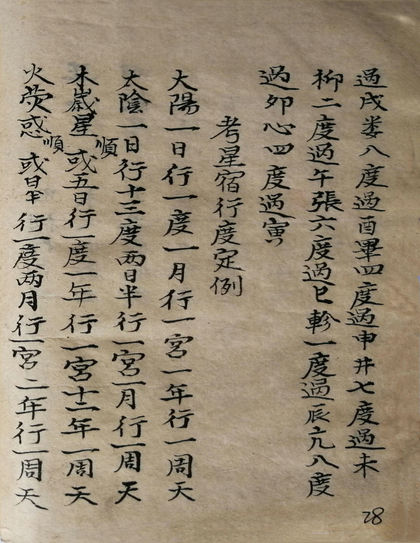 過戌娄八度過酉畢四度過申井七度過未
柳二度過午張六度過巳軫一度過辰亢八度
過卯心四度過寅
考星宿行度定例
大陽一日行一度一月行一宮一年行一周天
大陰一日行十三度兩日半行一宮一月行一周天
木歲星順或五日行一度一年行一宮十二年一周天
火荧惑順或日半行一度兩月行一宮二年行一周天
28